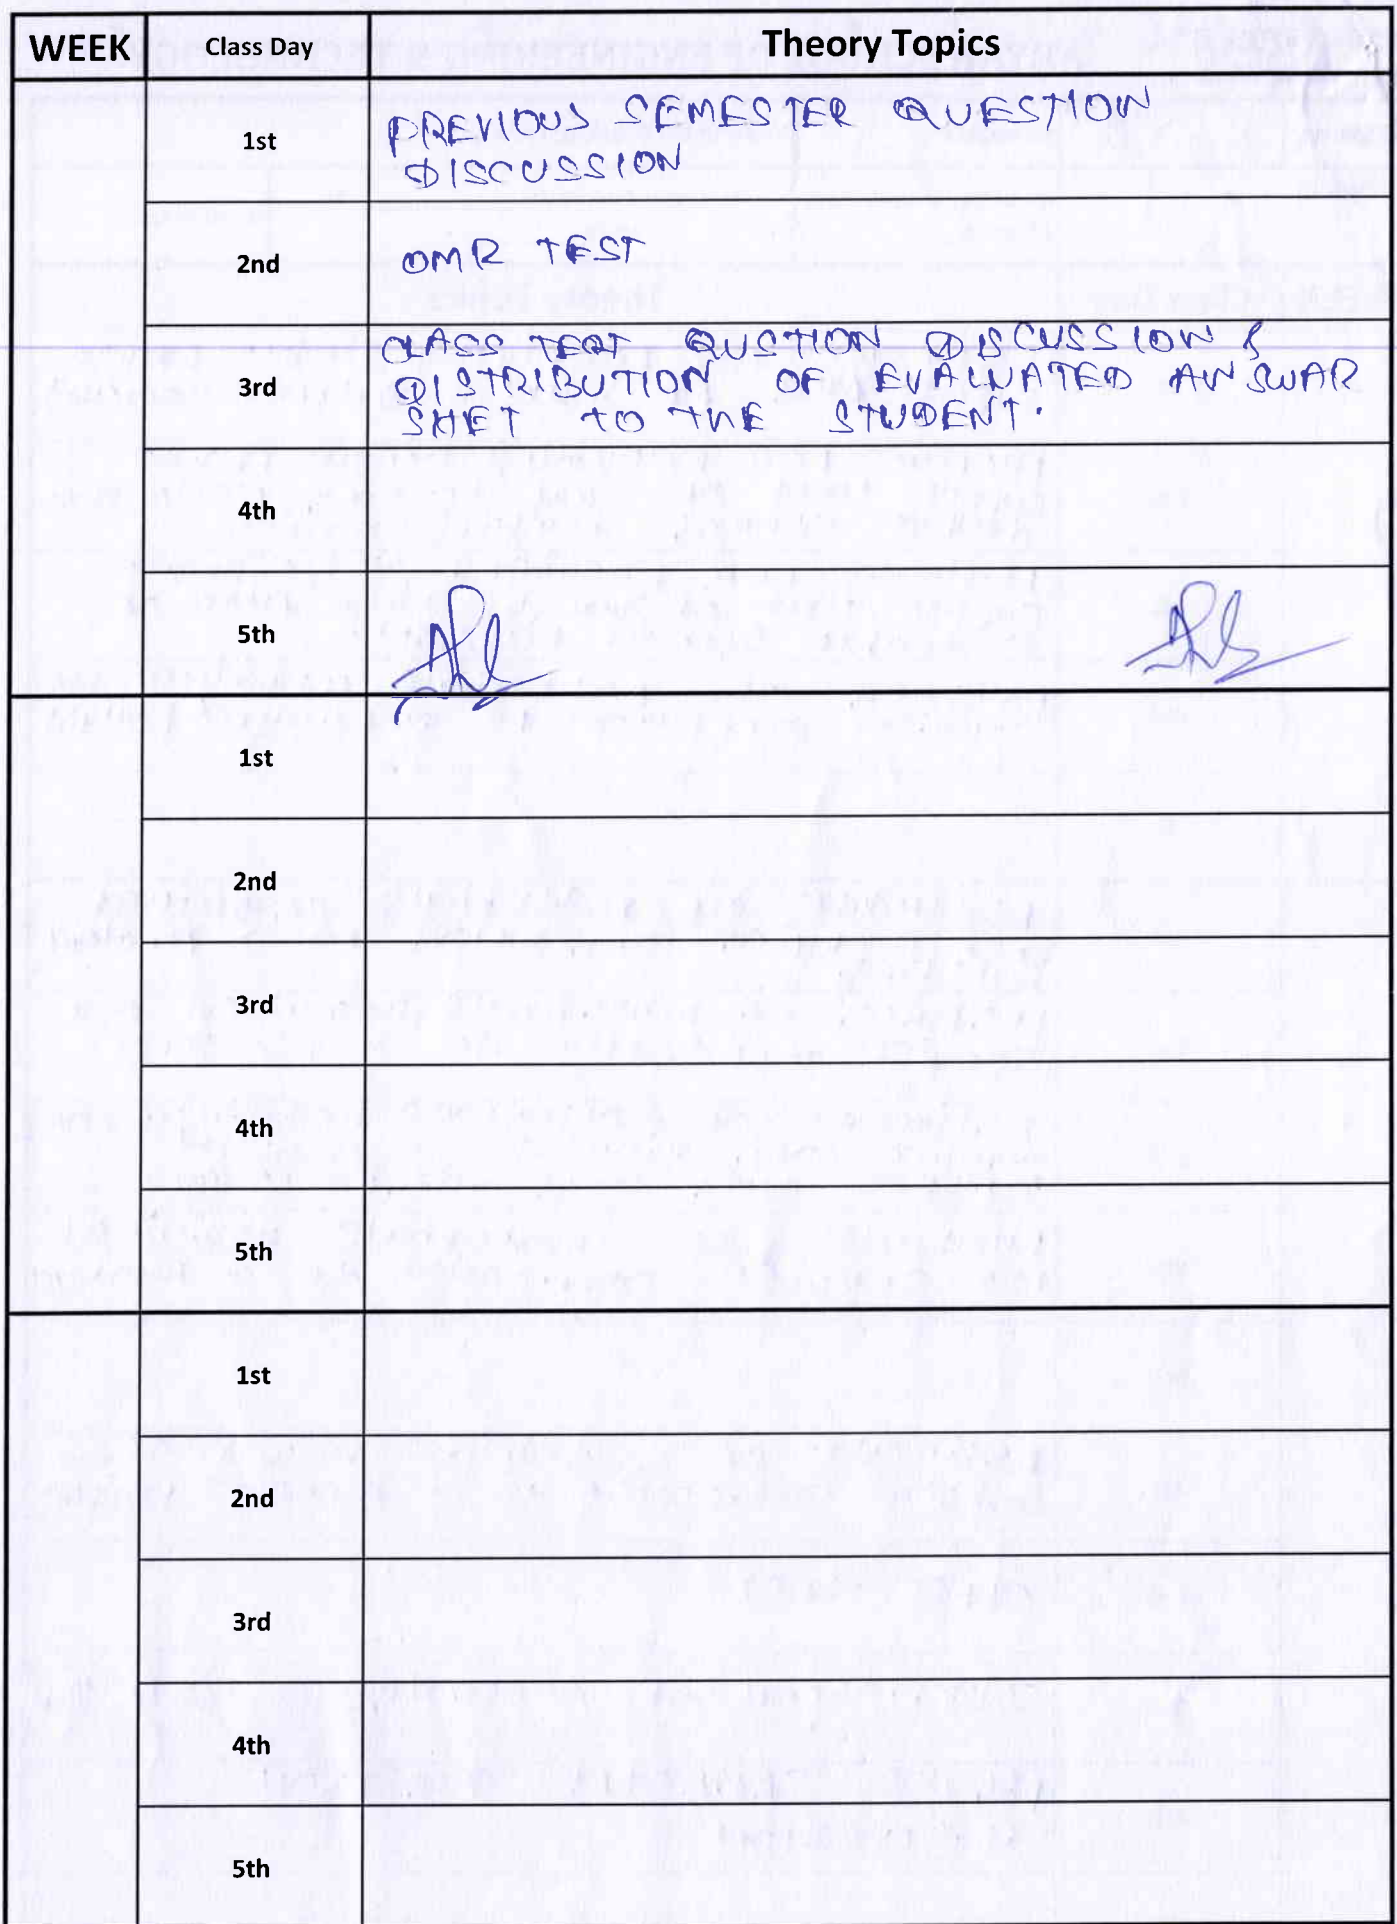 WEEK Class Day Theory Topics
1st PREVIOUS SEMESTER QUESTION
DISCUSSION
2nd OMR TEST
CLASS TEST QUSTION DISCUSSION &
3rd DISTRIBUTION OF EVALUATED ANSWAR
SHET TO THE STUDENT.
4th
5th
1st
2nd
3rd
4th
5th
1st
2nd
3rd
4th
5th